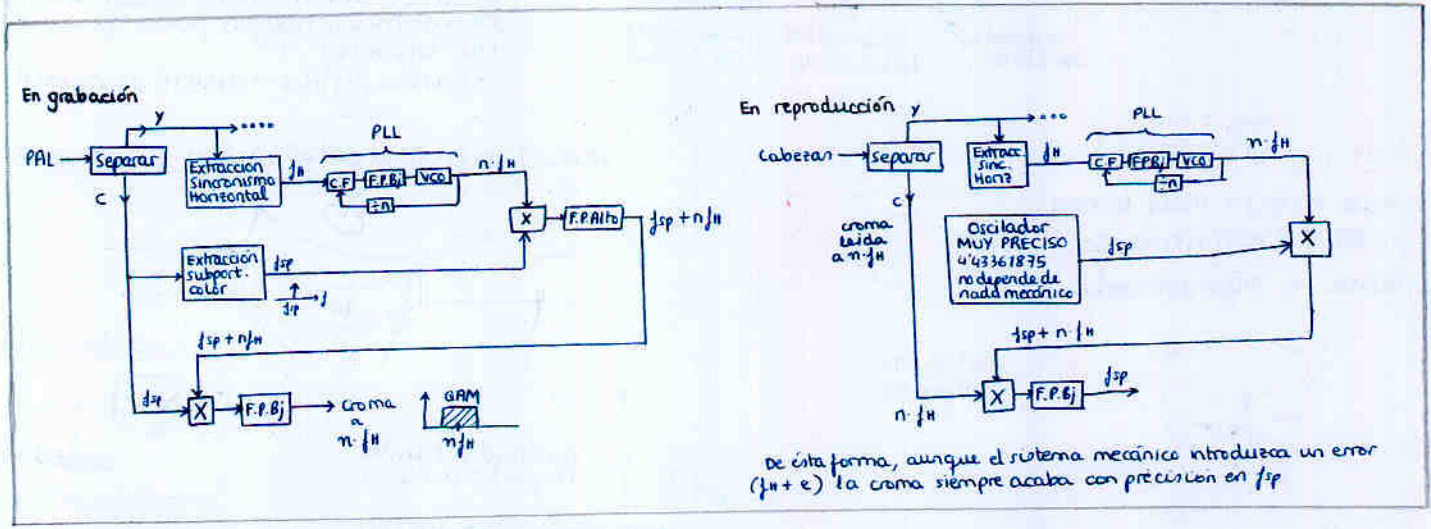 En grabación
y
....
PAL
Separar
Extracción
Sincronismo
Horizontal
fH
PLL
C.F
F.P.Bj
VCO
÷n
n·fH
C
X
F.P.Alto
fsp + nfH
Extracción
subport.
color
fsp
fsp
f
fsp + nfH
fsp
X
F.P.Bj
croma
a
n·fH
QAM
nfH
En reproducción
y
....
Cabezas
Separar
Extracc
Sinc.
Horiz
fH
PLL
C.F
F.P.Bj
VCO
÷n
n·fH
C
croma
leida
a n·fH
Oscilador
MUY PRECISO
4'43361875
no depende de
nada mecánico
fsp
X
fsp + n·fH
n·fH
X
F.P.Bj
fsp
De ésta forma, aunque el sistema mecánico introduzca un error
(fH + ε) la croma siempre acaba con precisión en fsp